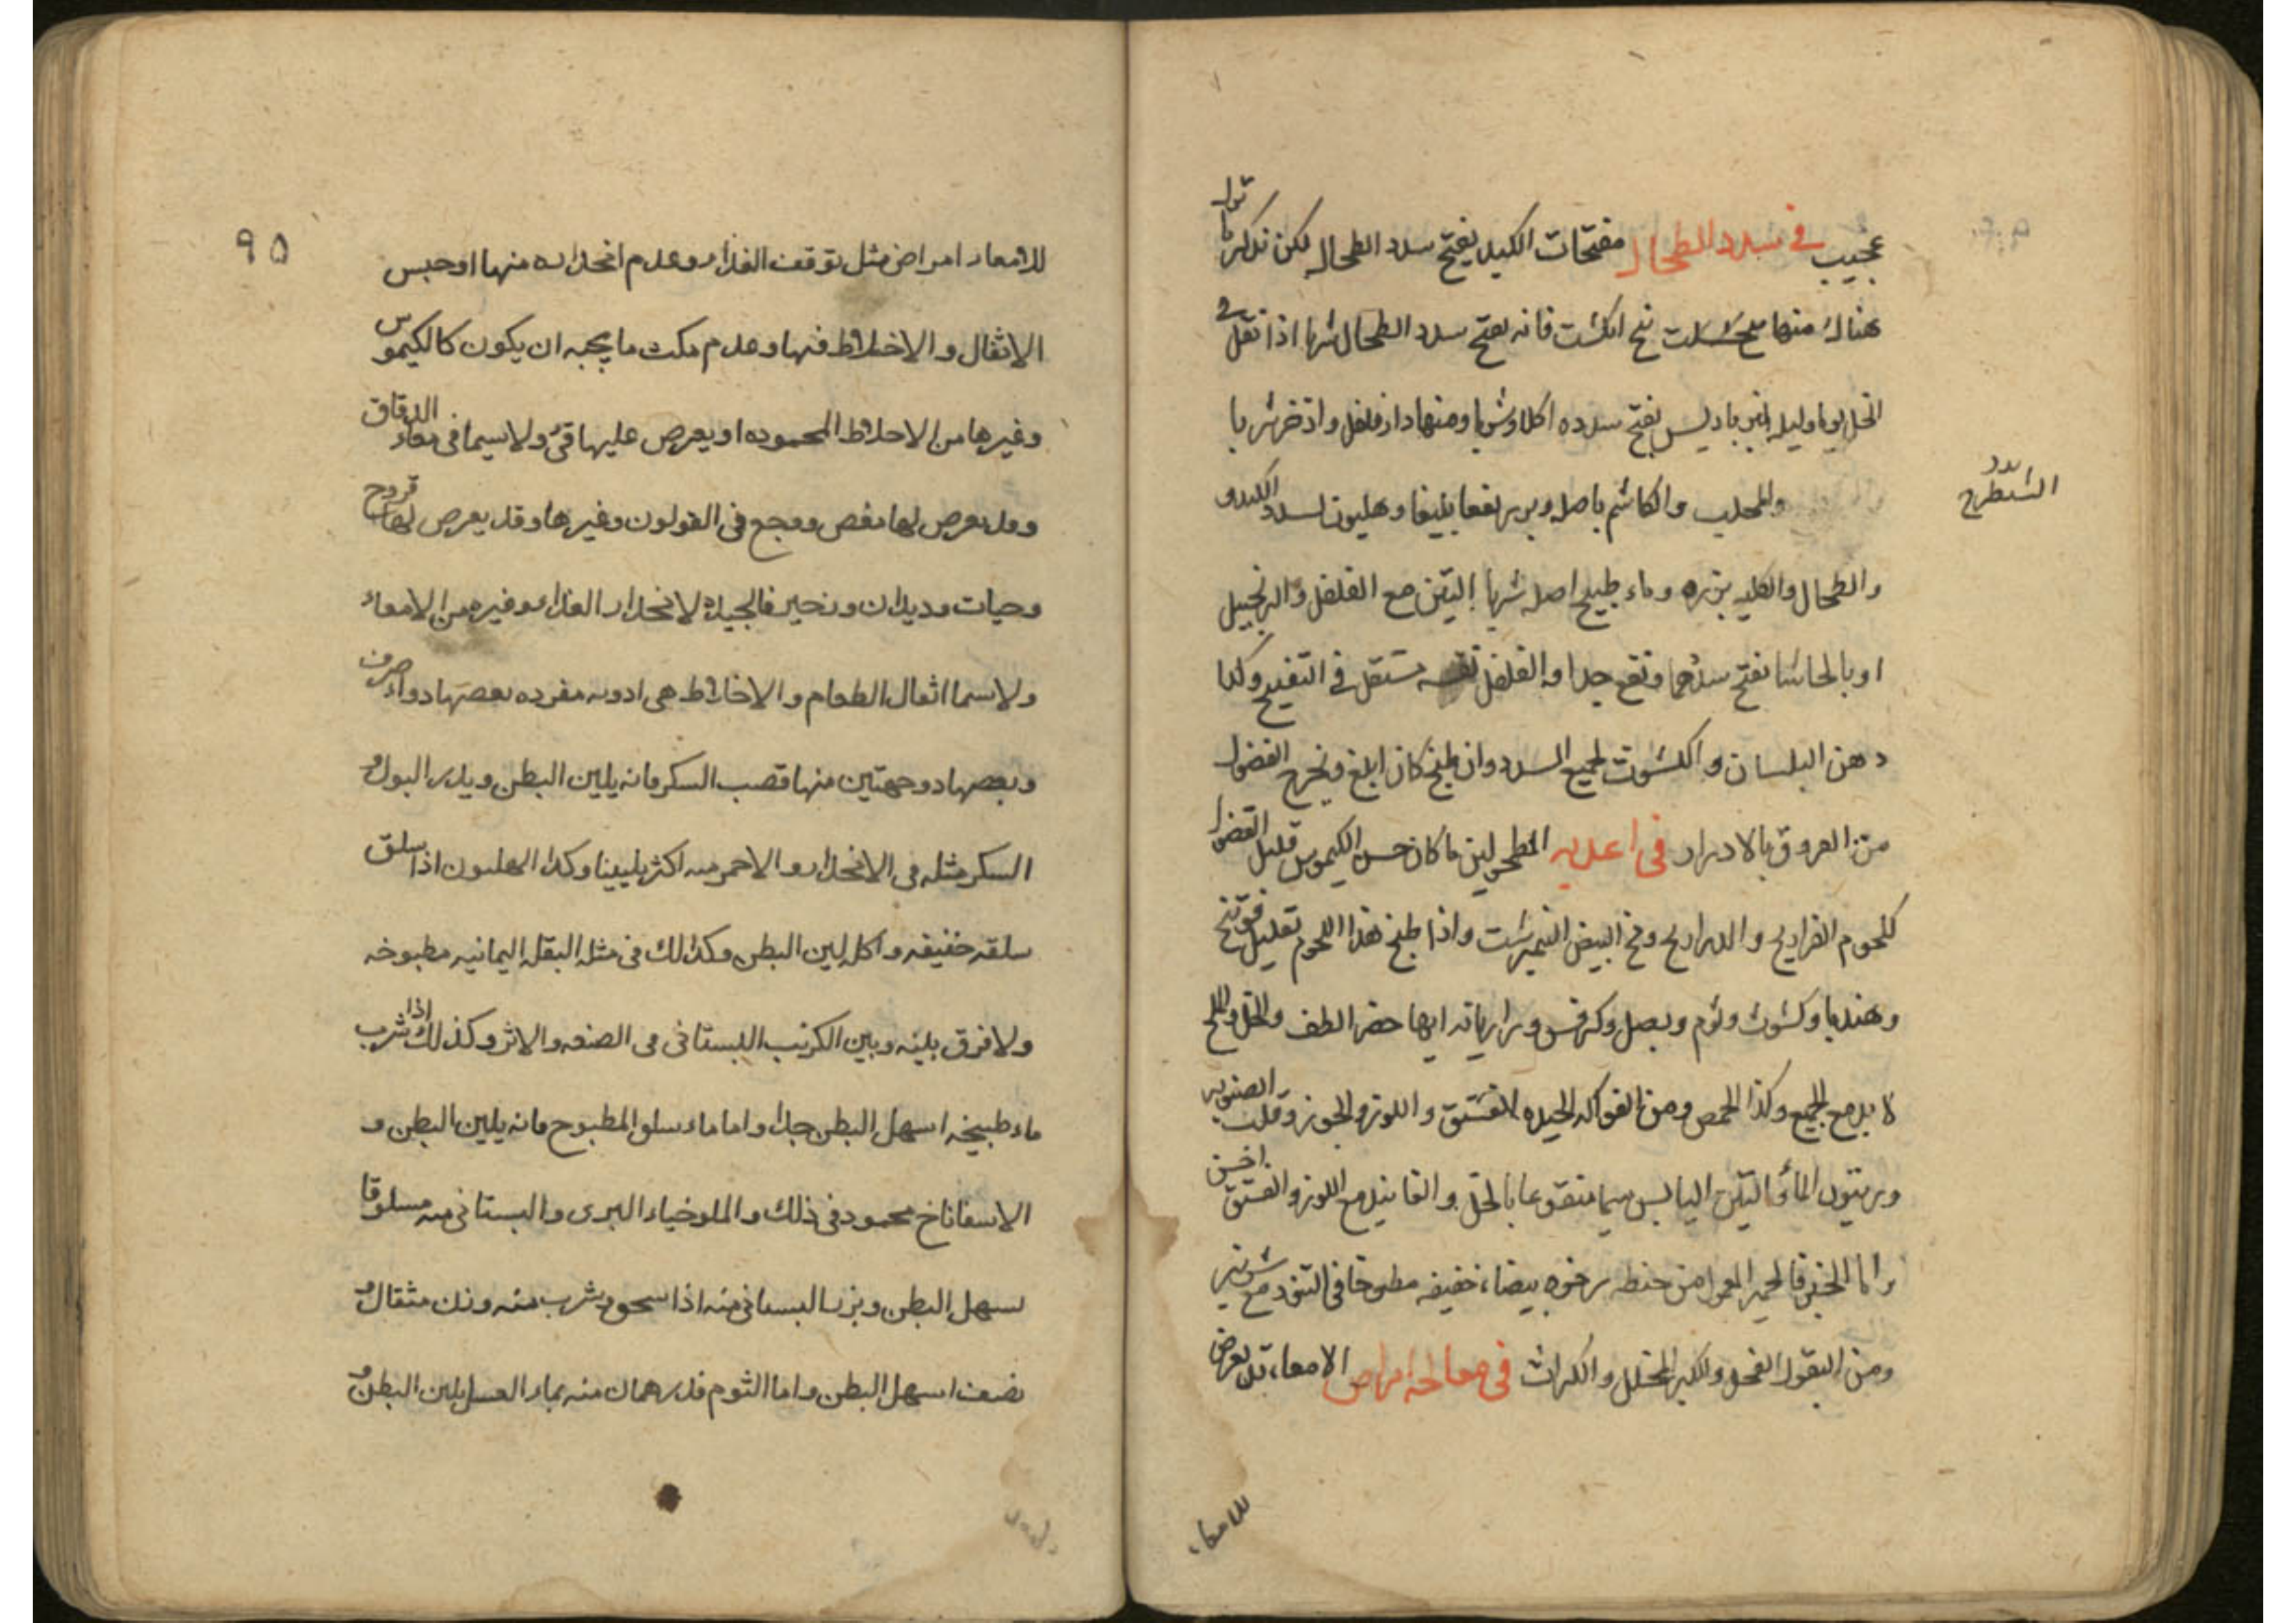 عجيب في سدد الطحال مفتحات الكبد يفتح سدد الطحال لكن نذكر
هناك منها فانه يفتح سدد الطحال شربا اذا نقل في
الخل يوما وليلة يفتح سدده اكلا وشربا ومنها دار فلفل واذخر شربا
السيطرج
والمحلب والكاشم باصله نفعا بليغا وهليون لسدد الكبد و
والطحال والكليه بزره وماء طبيخ اصله شربا التين مع الفلفل والزنجبيل
او بالحاشا نفتح سددهما ونفع جدا والفلفل نفسه مستقل في التفتيح وكذا
دهن البلسان والكشوت لجميع السدد وان طبخ كان ابلغ ويخرج الفضول
من العروق بالادرار في اغذيه المطحولين ما كان حسن الكيموس قليل الفضول
كلحوم الفراريج والدراريج ومح البيض النيمبرشت واذا طبخ هذا اللحوم بقليل فوتنج
وهندبا وكشوث وثوم وبصل وكرفس ورازيانه ايها حضر الطف والخل والملح
لا بد مع الجميع وكذا الحمص ومن الفواكه الجيده الفستق واللوز والجوز وقلب الصنوبر
وزيتون الماء والتين اليابس سيما منقوعا بالخل والفانيد مع اللوز والفستق احسن
واما الخبز فالخمير المعمول من حنطه رخوه بيضاء خفيفه مطبوخا في التنور مع شونيز
ومن البقول الفجل والكبر المخلل والكراث في معالجه امراض الامعاء قد يعرض
للامعاء
٩٥
للامعاء امراض مثل توقف الغذاء وعدم انحداره منها او حبس
الاثفال والاخلاط فيها وعدم مكث ما يجب ان يكون كالكيموس
وغيرها من الاخلاط المحموده او يعرض عليها قئ ولا سيما في معاء الدقاق
وقد يعرض لها مغص ووجع في القولون وغيرها وقد يعرض لها قروح
وحيات وديدان وزحير فالجيدة لانحدار الغذاء وغيره من الامعاء
ولا سيما اثفال الطعام والاخلاط هي ادويه مفرده بعضها دواء صرف
وبعضها ذو جهتين منها قصب السكر فانه يلين البطن ويدر البول و
السكر مثله في الانحدار والاحمر منه اكثر تليينا وكذا الهليون اذا سلق
سلقه خفيفه واكل لين البطن وكذلك في مثله البقله اليمانيه مطبوخه
ولا فرق بينه وبين الكرنب البستاني في الصنعه والاثر وكذلك اذا شرب
ماء طبيخه اسهل البطن جدا واما ماء سلق المطبوخ فانه يلين البطن و
الاسفاناخ محمود في ذلك والملوخياء البرى والبستاني منه مسلوقا
يسهل البطن وبزر البستاني منه اذا سحق وشرب منه وزن مثقال و
نصف اسهل البطن واما الثوم قدرهمان منه بماء العسل يلين البطن و